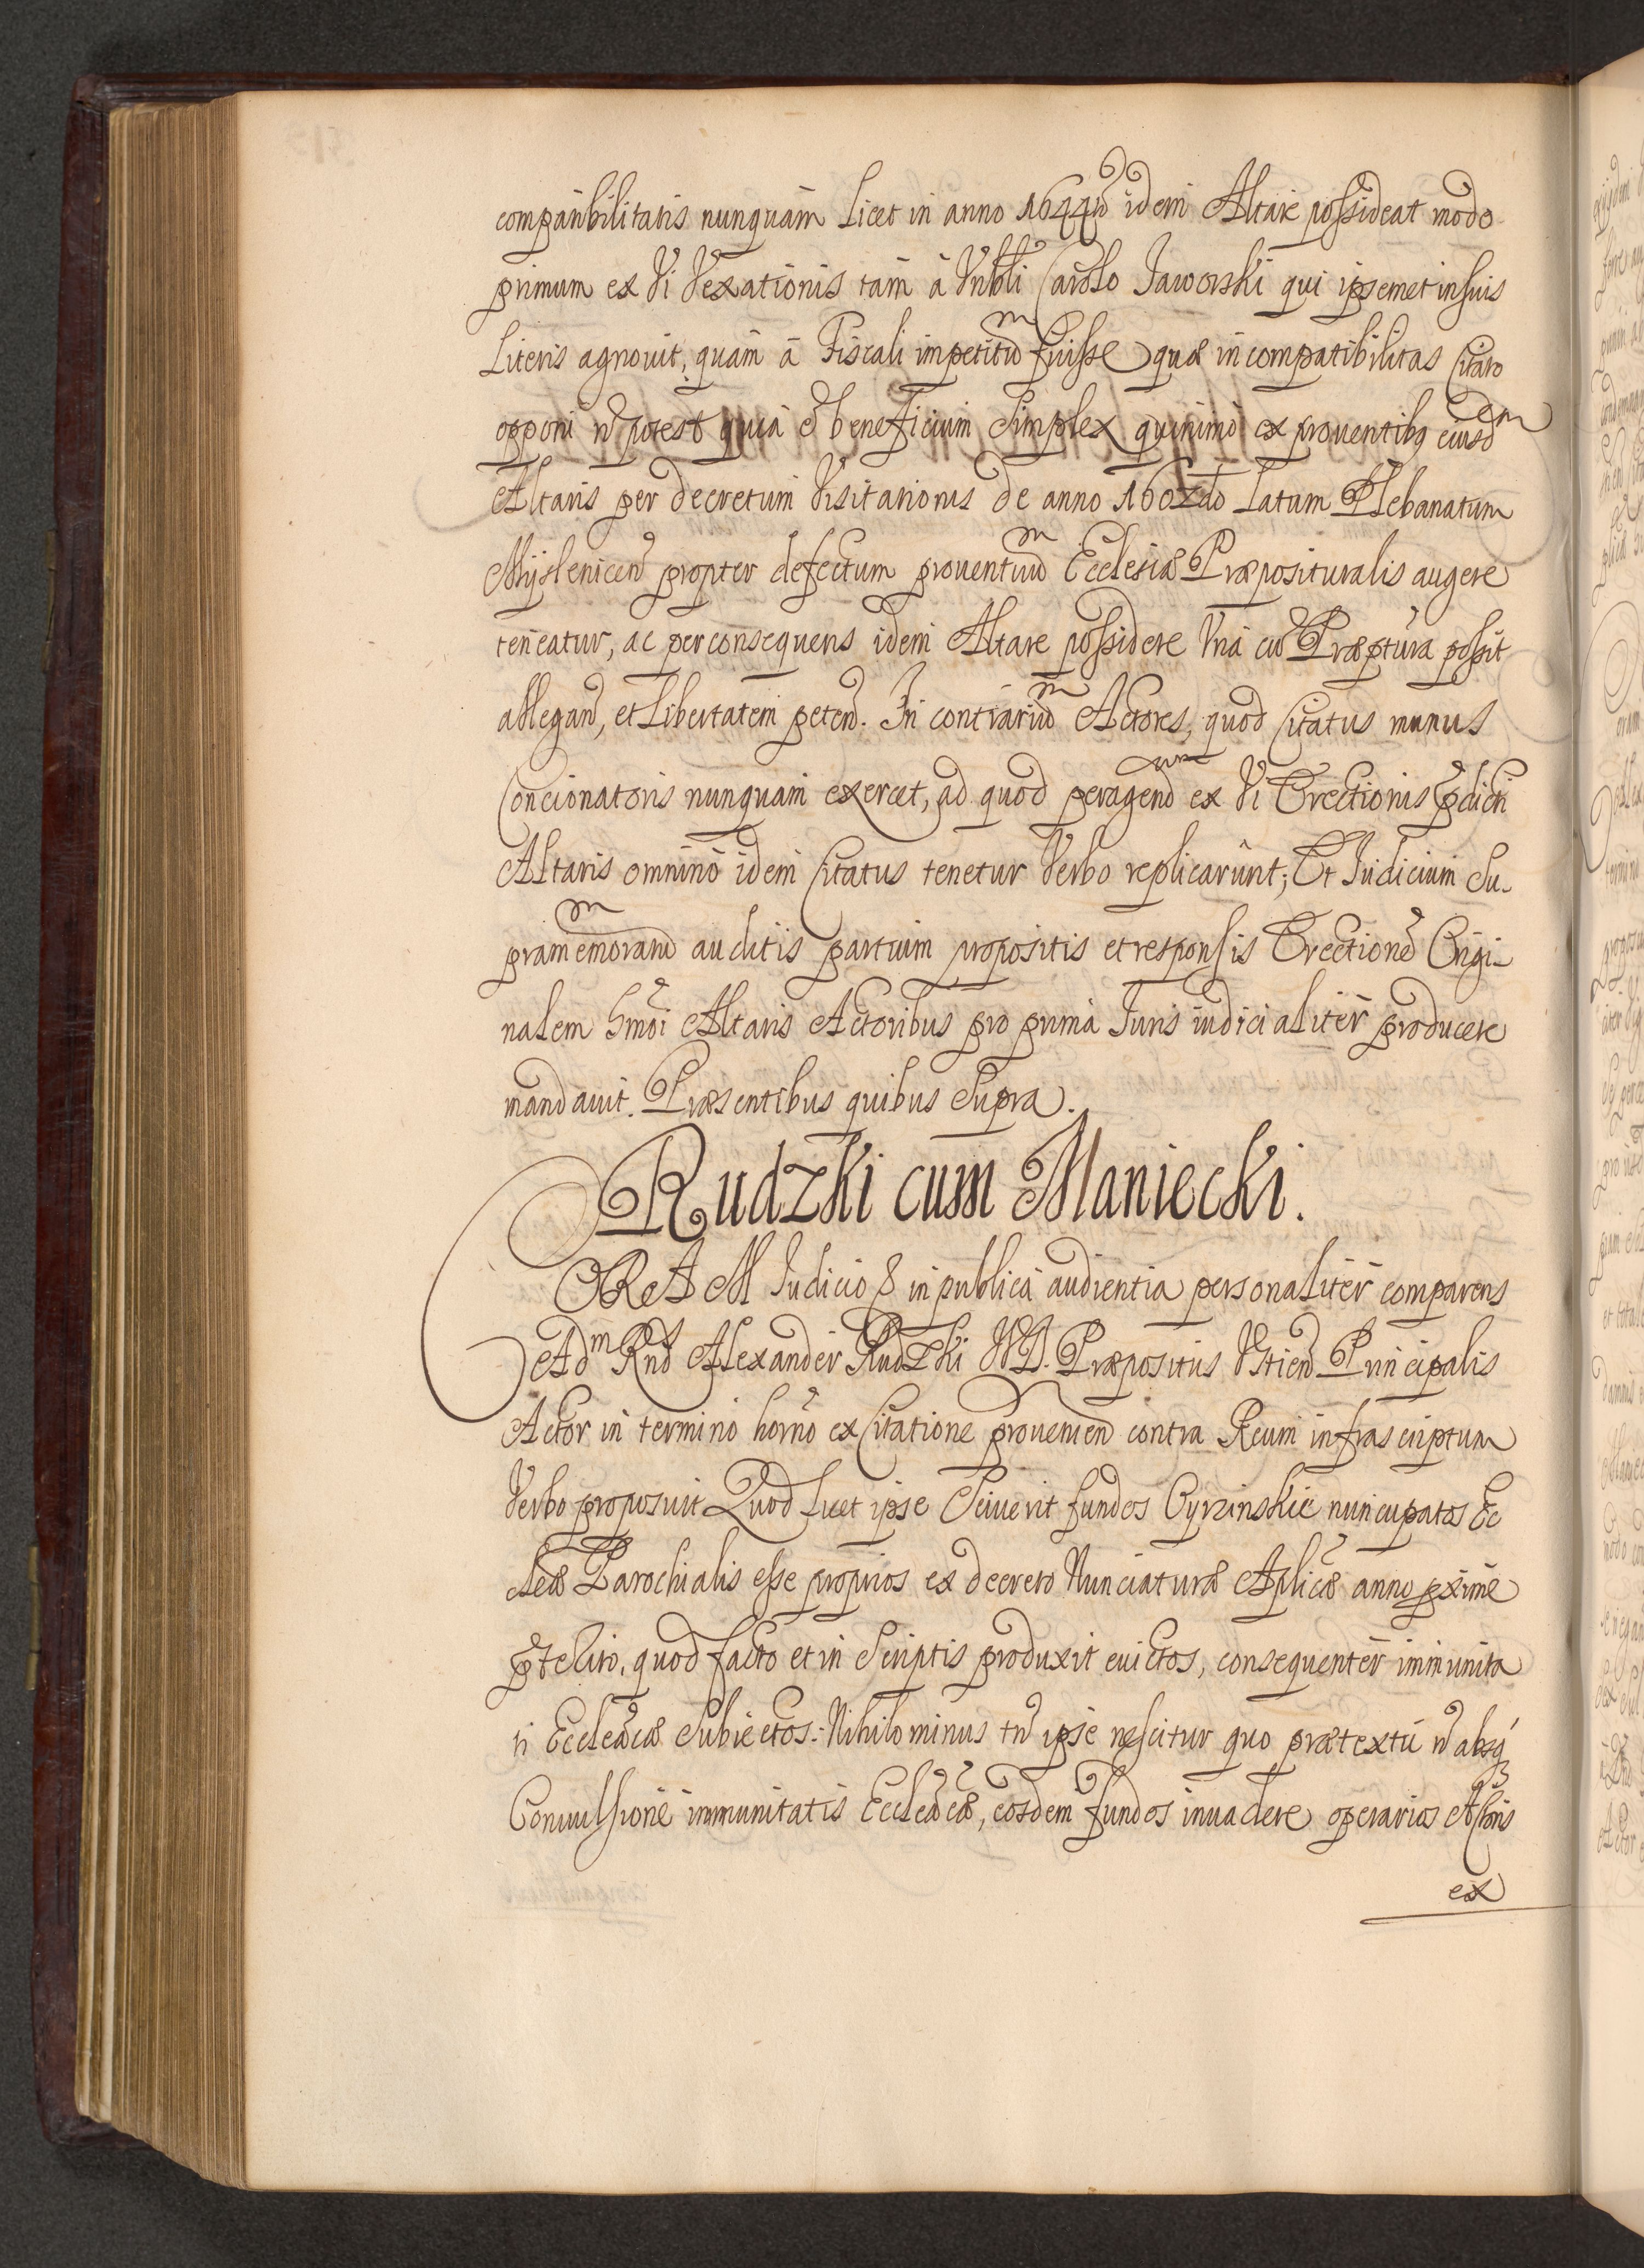 compatibilitatis nunquam Licet in anno 1644tũ idem Altare possideat modo
primum ex Vi Vexationis tam â Vnbli Carolo Jaworski qui ipsemet in suis
Literis agnouit, quam â Fiscali impetitũm fuisse, quæ incompatibilitas Citato
opponi ñ potest quia ẽ beneficium Simplex quinimo ex prouentibq eiusdem
Altaris per decretum Visitationis de anno 1602do Latum Plebanatum
Myslenicen̄ propter defectum prouentuũm Ecclesiæ Præposituralis augere
teneatur, ac per consequens idem Altare possidere Vna cũ Præptura possit
allegan̄, et Libertatem peten̄. In contrariũm Actores, quod Citatus munus
Concionatoris nunquam exercet, ad quod peragend̄um ex Vi Erectionis p̄dicti
Altaris omnino idem Citatus tenetur Verbo replicarunt; Et Iudicium Su-
pramemoratũm auditis partium propositis et responsis Erectionẽ Origi-
nalem hm̄oi Altaris Actoribus pro prima Iuris iudicialiter producere
mandauit. Præsentibus quibus Supra.
Rudzki cum Maniecki.
CORAM Iudicio & in publica audientia personaliter comparens
Adm Rnd̄ Alexander Rudzki V.D. Præpositus Vstien̄ Principalis
Actor in termino horno ex Citatione prouenien̄ contra Reum infrascriptum
Verbo proposuit Quod Licet ipse Sciuerit fundos Cyrzinskie nuncupatos Ec
cleæ Parochialis esse proprios ex decreto Nunciaturæ Aplicæ anno pxime
ptelito, quod facto et in Scriptis produxit euictos, consequenter immunita
ti Eccleãcæ Subiectos: Nihilominus tñ ipse nescitur quo prætextu ñ absq́
Conuulsione immunitatis Eccleãcæ, eosdem fundos inuadere operarios Actoris
ex